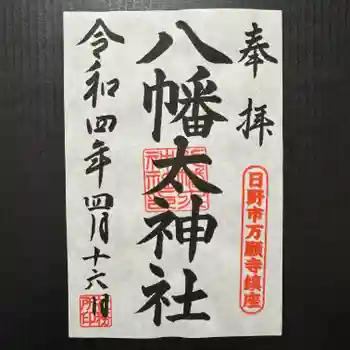 奉拝
日野市万願寺鎮座
八幡太神社
令和四年四月十六日